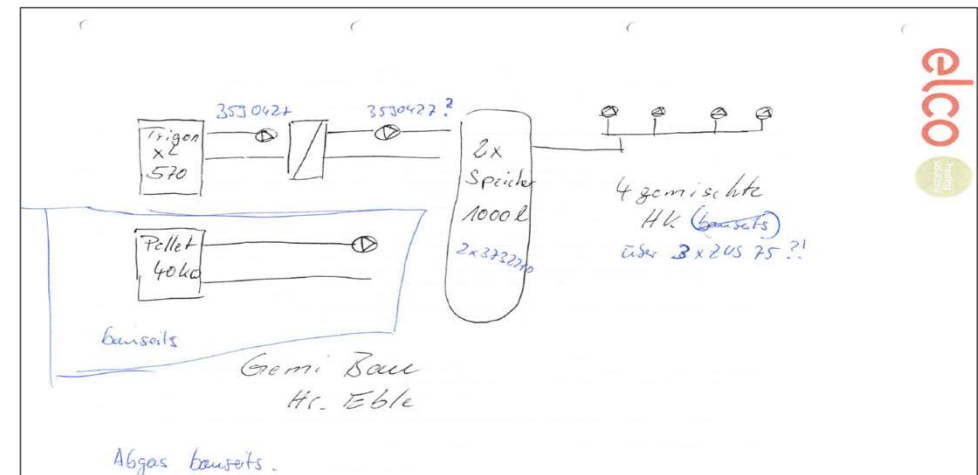 elco
heating solutions
3590427
3590427?
Trigon
XL
570
2x
Speicher
1000 l
2x3732710
4 gemischte
HK (bauseits)
über 3xZUS 75 ?!
Pellet
40kW
bauseits
Gemi Bau
Hr. Eble
Abgas bauseits.